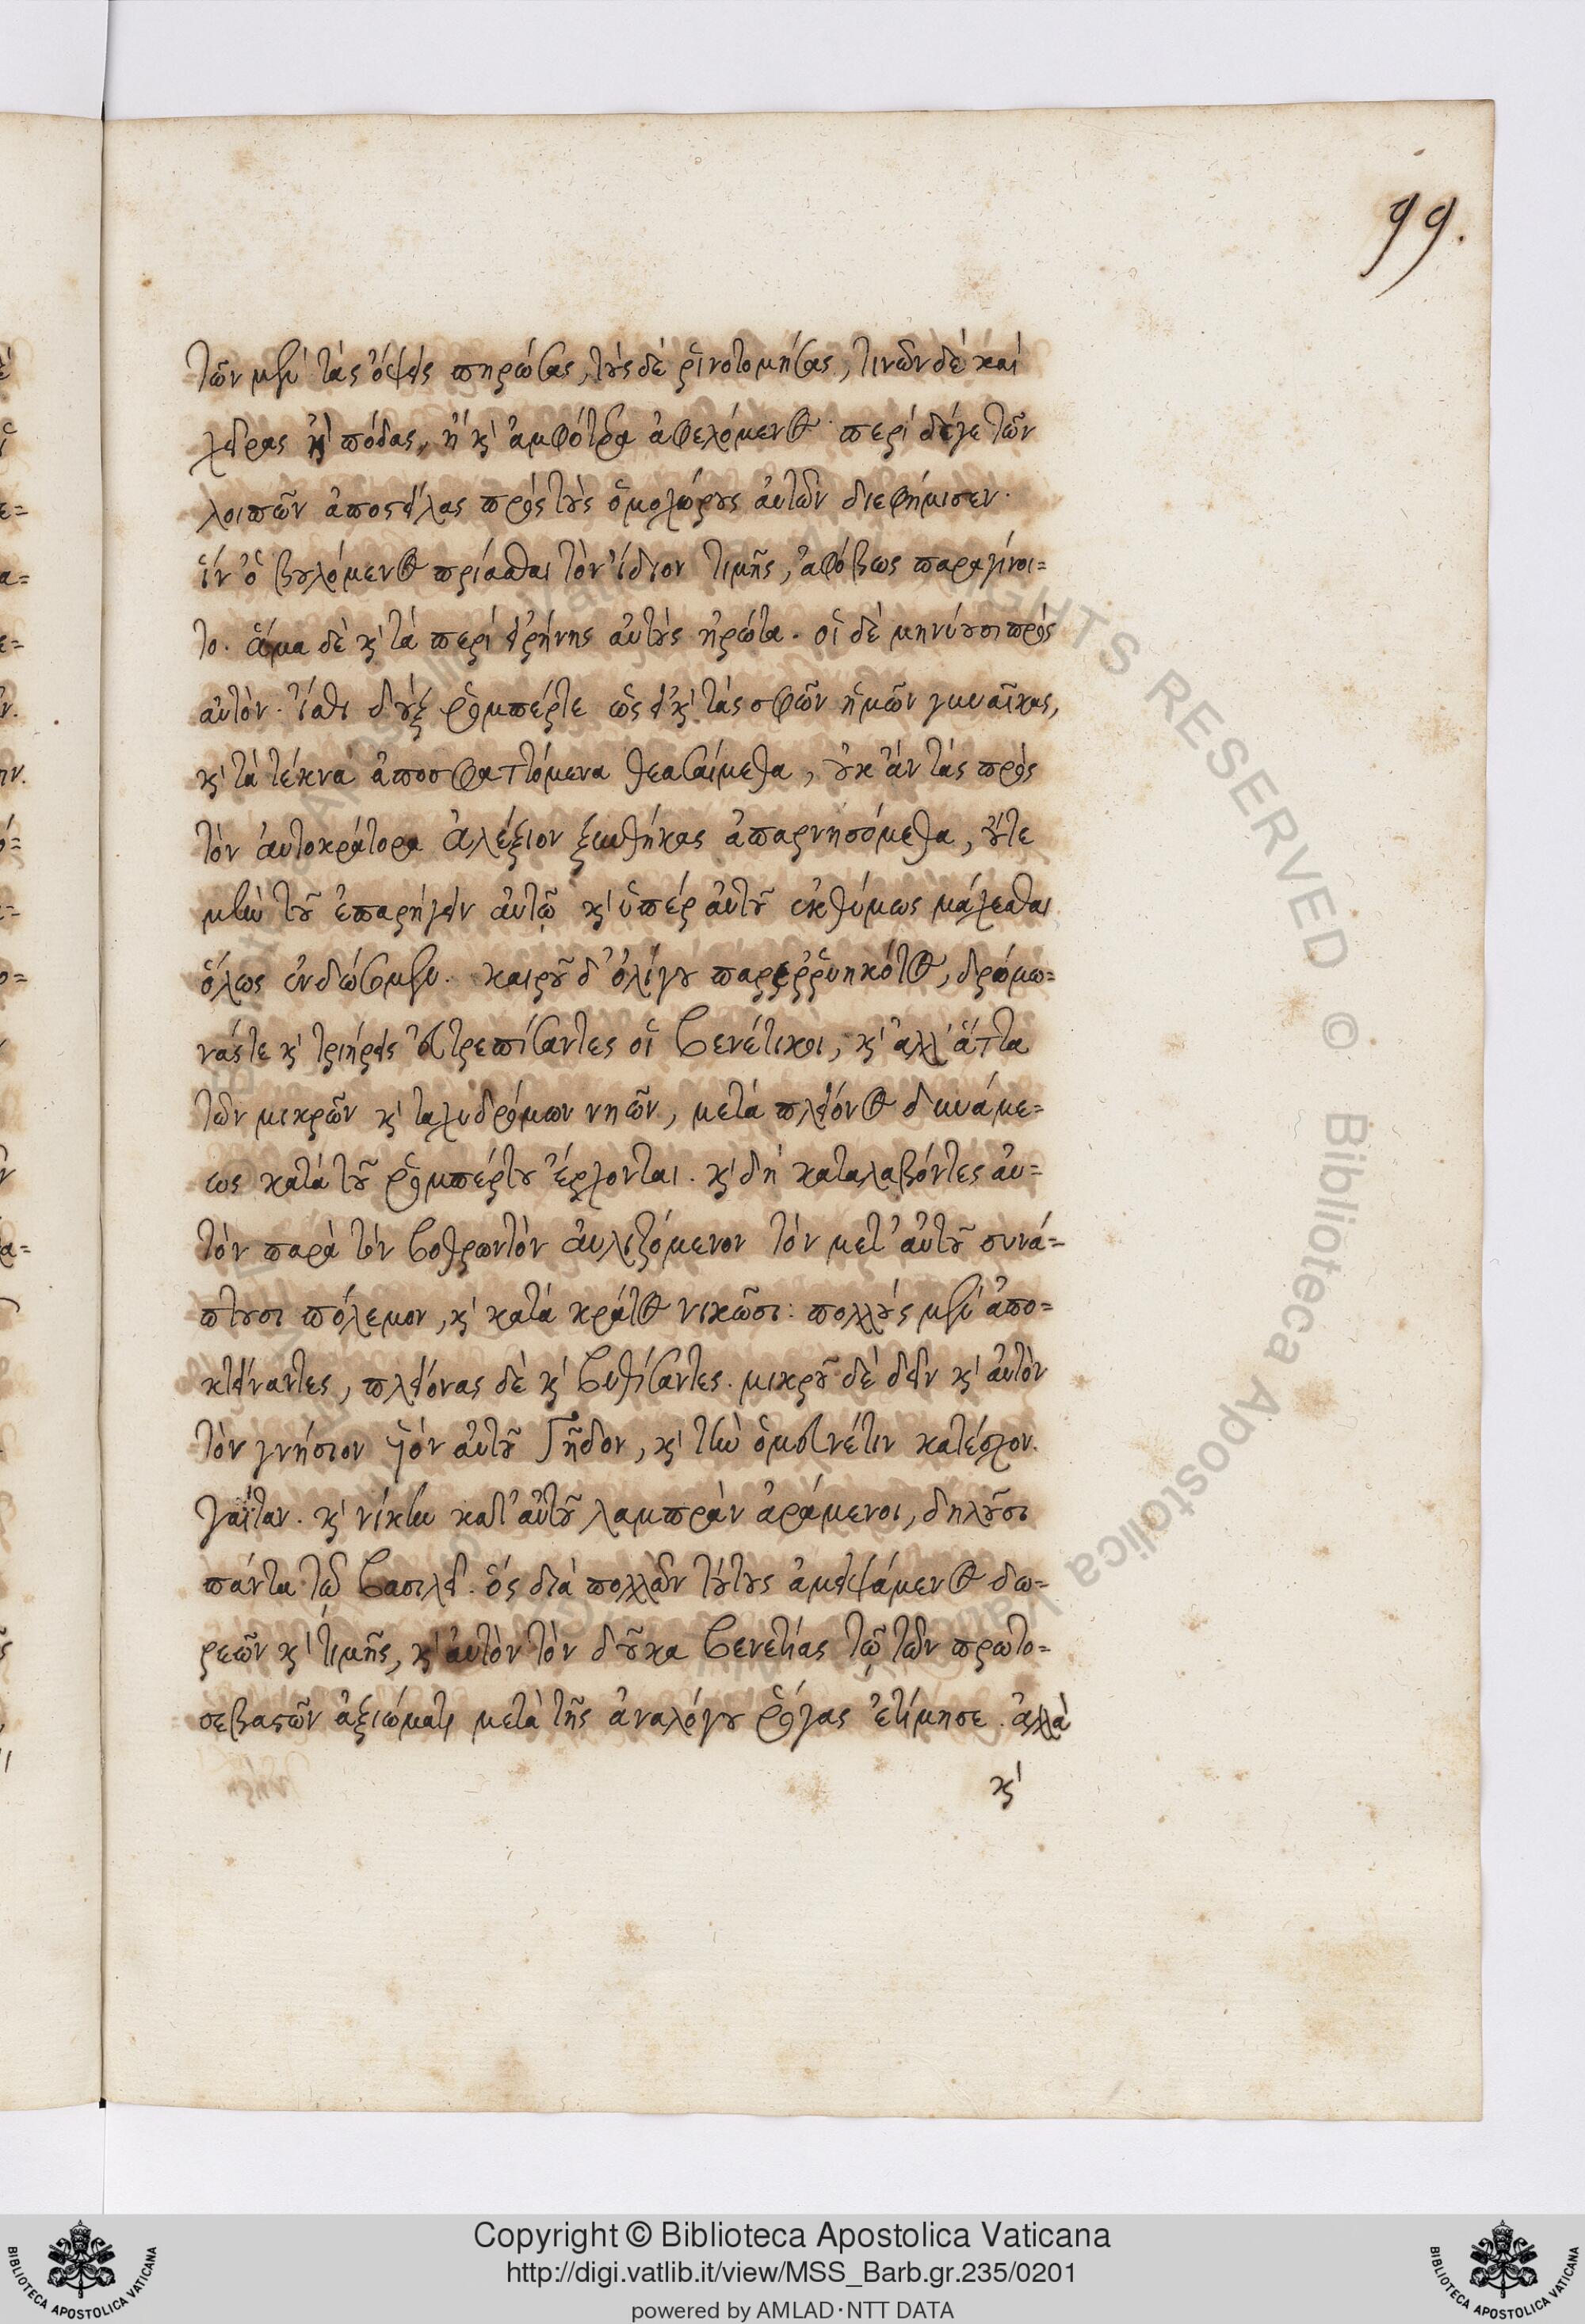 99.
τῶν μὲν τὰς ὄψεις πηρώσας, τοὺς δὲ ῥινοτομήσας, τινῶν δὲ καὶ
χεῖρας ἢ πόδας, ἢ κ̀ ἀμφότερα ἀφελόμενος· περὶ δέγε τῶν
λοιπῶν ἀποστείλας πρὸς τοὺς ὁμοχώρους αὐτῶν διεφήμισεν·
ἵν' ὁ βουλόμενος πρίασθαι τὸν ἴδιον τιμῆς, ἀφόβως παραγίνοι=
το. ἅμα δὲ κ̀ τὰ περὶ εἰρήνης αὐτοὺς ἠρώτα. οἱ δὲ μηνύουσι πρὸς
αὐτόν. ἴσθι δοὺξ ῥομπέρτε ὡς εἰ κ̀ τὰς σφῶν ἡμῶν γυναῖκας,
κ̀ τὰ τέκνα ἀποσφαττόμενα θεασαίμεθα, οὐκ ἂν τὰς πρὸς
τὸν αὐτοκράτορα Ἀλέξιον ξυνθήκας ἀπαρνησόμεθα, οὔτε
μὴν τοῦ ἐπαρήγειν αὐτῷ κ̀ ὑπὲρ αὐτοῦ ἐκθύμως μάχεσθαι
ὅλως ἐνδώσομεν. καιροῦ δ' ὀλίγου παρερρυηκότος, δρόμω=
νάς τε κ̀ τριήρεις εὐτρεπίσαντες οἱ βενέτικοι, κ̀ ἀλλ' ἄττα
τῶν μικρῶν κ̀ ταχυδρόμων νηῶν, μετὰ πλείονος δυνάμε=
ως κατὰ τοῦ ῥομπέρτου ἔρχονται. κ̀ δὴ καταλαβόντες αὐ=
τὸν παρὰ τὸν βοθρωντὸν αὐλιζόμενον τὸν μετ' αὐτοῦ συνά=
πτουσι πόλεμον, κ̀ κατὰ κράτος νικῶσι: πολλοὺς μὲν ἀπο=
κτείναντες, πλείονας δὲ κ̀ βυθίσαντες. μικροῦ δὲ δεῖν κ̀ αὐτὸν
τὸν γνήσιον υἱὸν αὐτοῦ Γῆδον, κ̀ τὴν ὁμευνέτιν κατέσχον.
γαΐταν. κ̀ νίκην κατ' αὐτοῦ λαμπρὰν ἀράμενοι, δηλοῦσι
πάντα τῷ βασιλεῖ. ὃς διὰ πολλῶν τούτους ἀμειψάμενος δω=
ρεῶν κ̀ τιμῆς, κ̀ αὐτὸν τὸν δοῦκα βενετίας τῷ τῶν πρωτο=
σεβαστῶν ἀξιώματι μετὰ τῆς ἀναλόγου ῥόγας ἐτίμησε. ἀλλὰ
κ̀
Copyright © Biblioteca Apostolica Vaticana
http://digi.vatlib.it/view/MSS_Barb.gr.235/0201
powered by AMLAD·NTT DATA